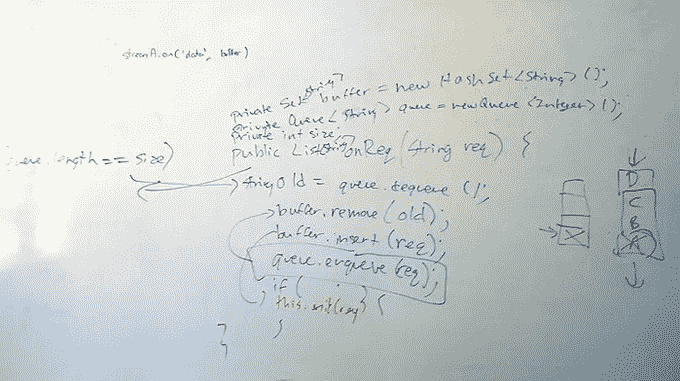 streamA.on('data', buffer)
private Set<String> buffer = new HashSet<String>();
private Queue<String> queue = new Queue<Integer>();
private int size;
public List<String> onReq(String req) {
.length == size)
string old = queue.dequeue();
buffer.remove(old);
buffer.insert(req);
queue.enqueue(req);
if (
this.emit(req) {
}
}
D
C
B
A
X